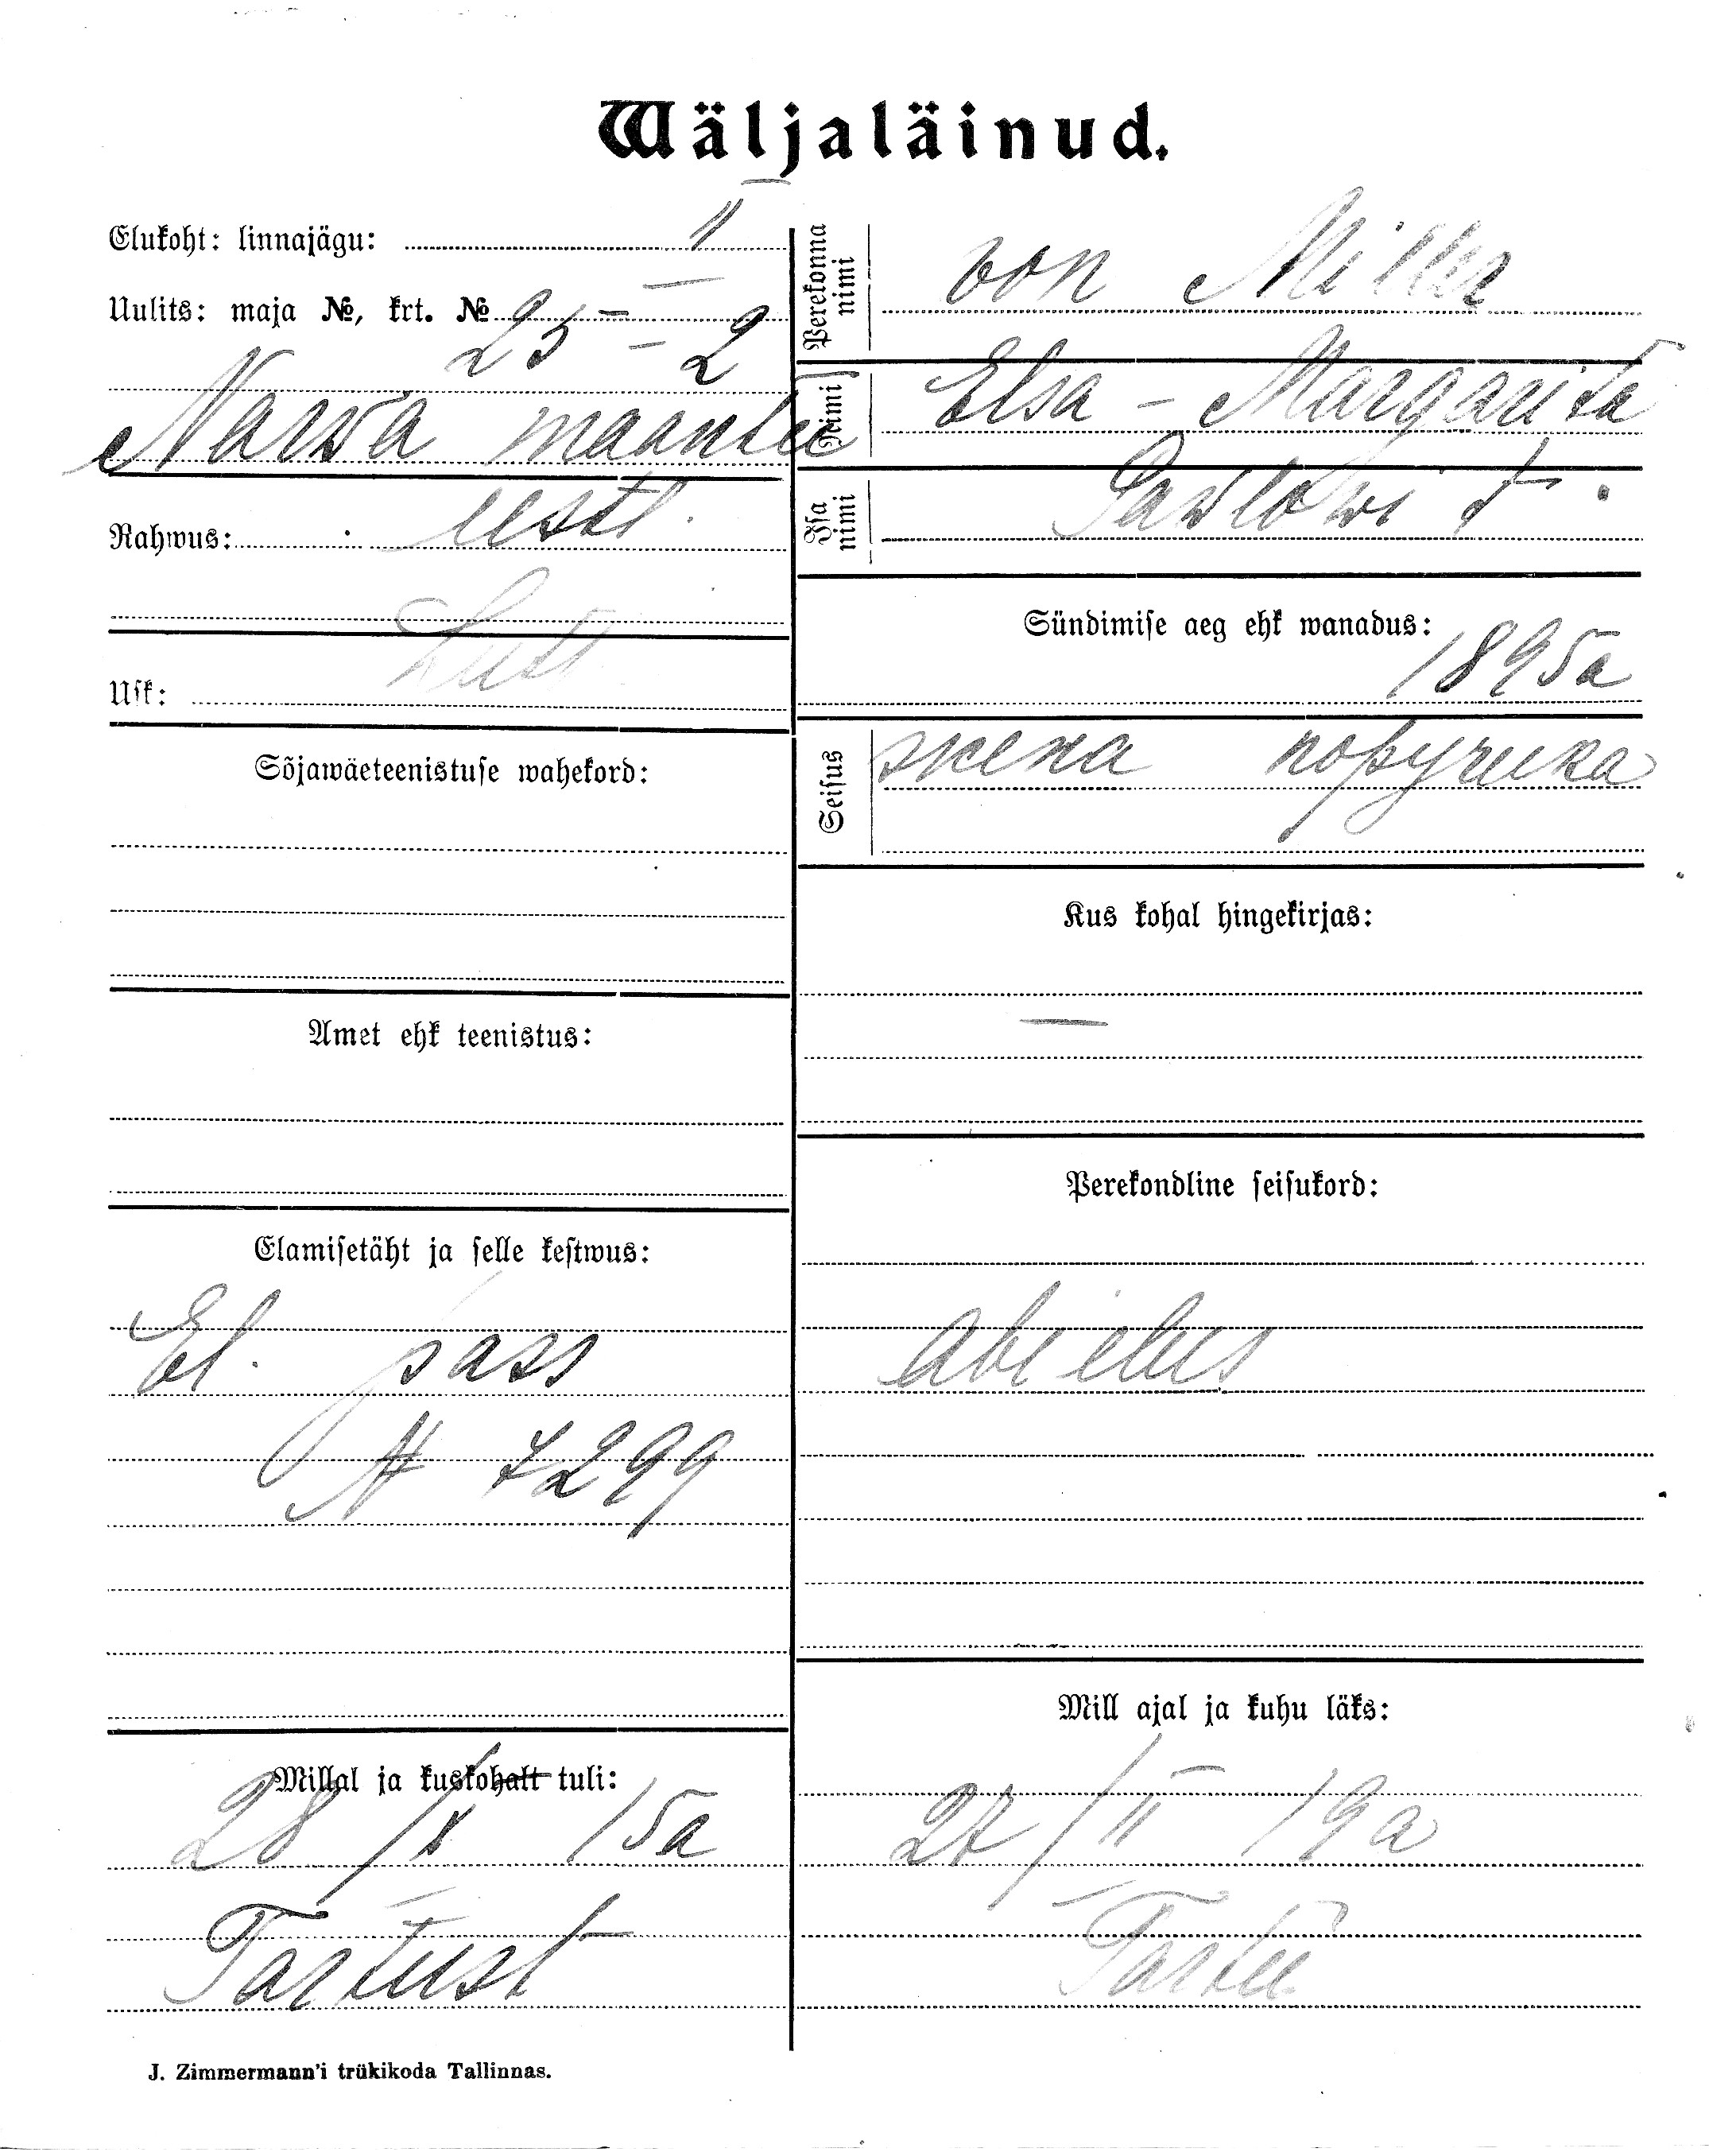 Wäljaläinud.
Elukoht: linnajägu: II
Uulits: maja №, krt. № 25 - 2
Narwa maantee
Rahwus: eestl.
Usk: Lutt
Sõjawäeteenistuse wahekord:
Amet ehk teenistus:
Elamisetäht ja selle kestwus:
El. pass
№ 7299
Millal ja kuskohalt tuli:
28/X 15a
Tartust
Perekonna nimi von Miller
Nimi Elsa - Margarita
Isa nimi Pawlowi t.
Sündimise aeg ehk wanadus:
1895a
Seisus жена поручика
Kus kohal hingekirjas:
—
Perekondline seisukord:
abielus
Mill ajal ja kuhu läks:
27/II 19a
Tartu
J. Zimmermann'i trükikoda Tallinnas.